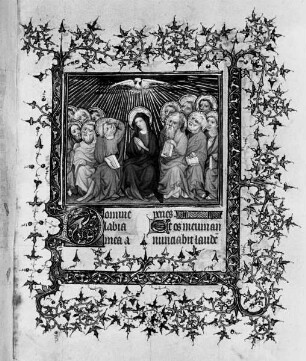 Domine
labia
mea a
peries
Et os meum an
nunciabit laude